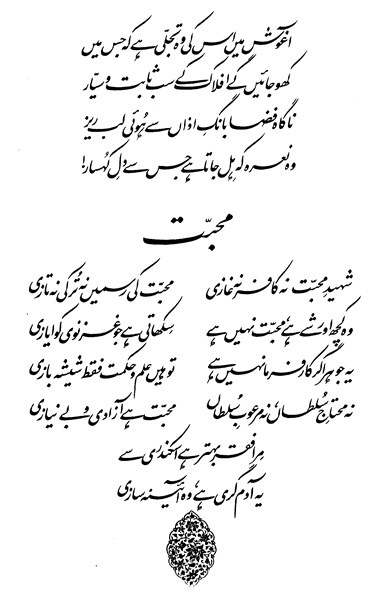 آغوش میں اس کی وہ تجلّی ہے کہ جس میں
کھو جائیں گے افلاک کے سب ثابت و سیّار
ناگاہ فضا بانگِ اذاں سے ہُوئی لب ریز
وہ نعرہ کہ ہِل جاتا ہے جس سے دلِ کُہسار!
محبّت
شہیدِ محبّت نہ کافر نہ غازی محبّت کی رسمیں نہ تُرکی نہ تازی
وہ کچھ اور شے ہے، محبّت نہیں ہے سِکھاتی ہے جو غزنوی کو ایازی
یہ جوہر اگر کارفرما نہیں ہے تو ہیں علم و حکمت فقط شیشہ بازی
نہ محتاجِ سُلطاں، نہ مرعوبِ سُلطاں محبّت ہے آزادی و بے نیازی
مِرا فقر بہتر ہے اسکندری سے
یہ آدم گری ہے، وہ آئینہ سازی